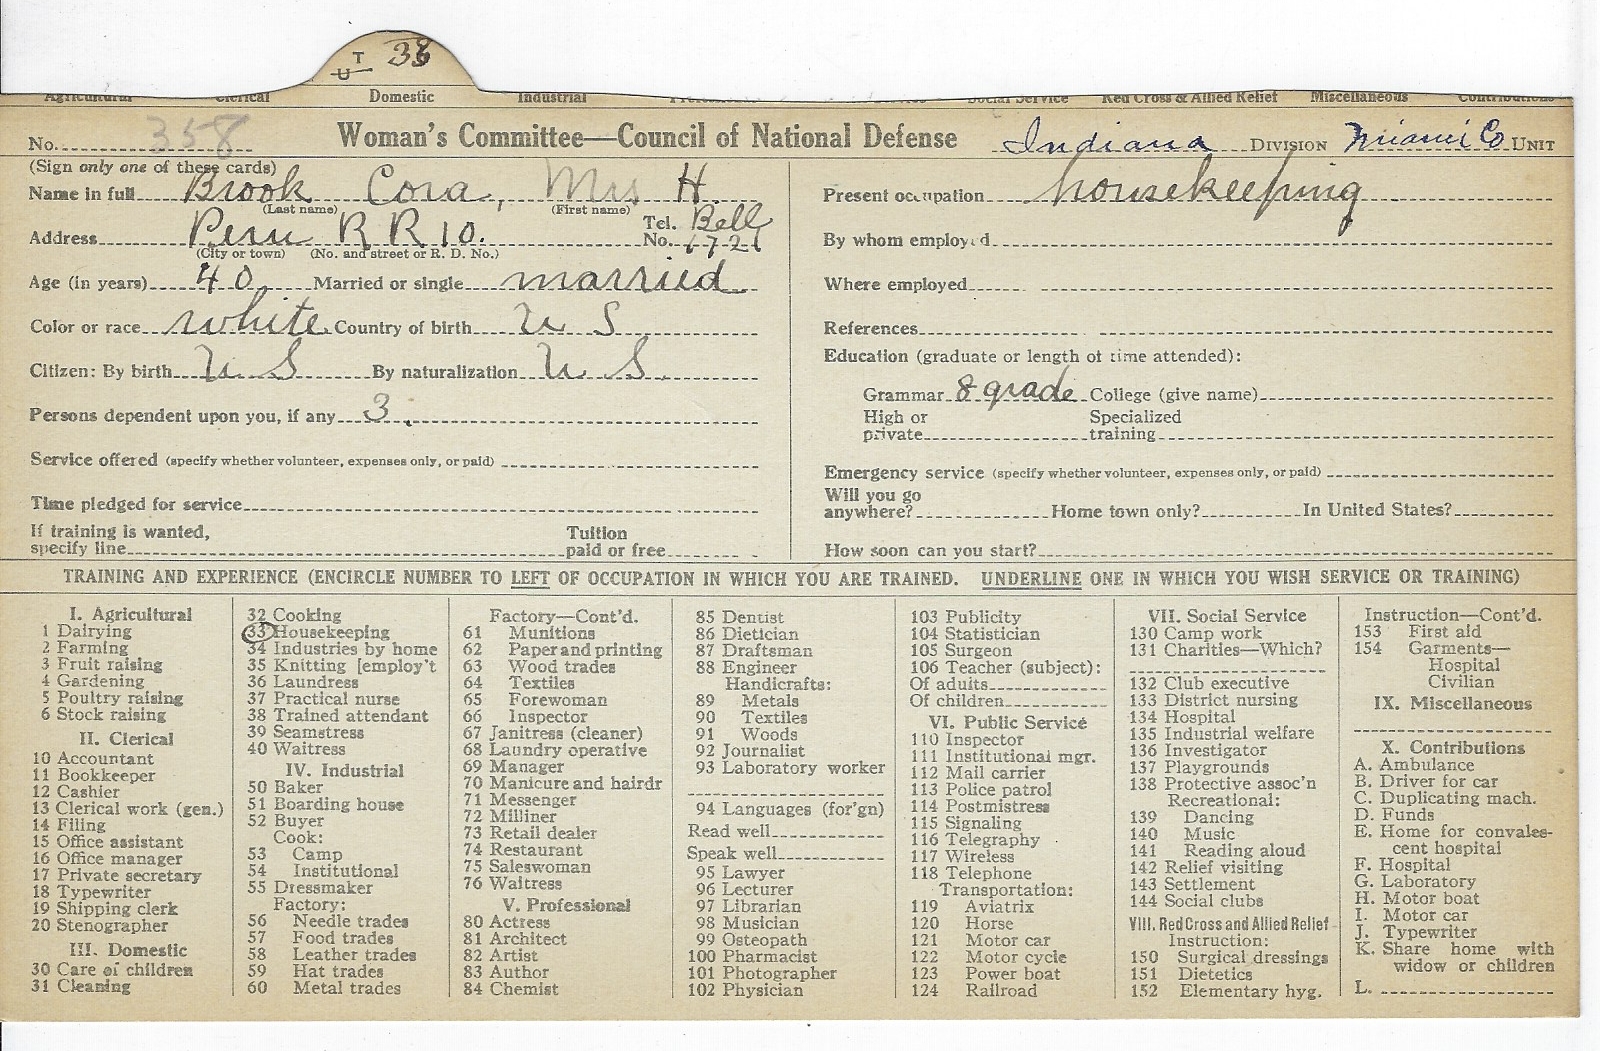 T 33
U
Agricultural Clerical Domestic Industrial Social Service Red Cross & Allied Relief Miscellaneous Contributions
No. 358 Woman's Committee—Council of National Defense Indiana DIVISION Miami Co UNIT
(Sign only one of these cards)
Name in full Brook Cora, Mrs H.
(Last name) (First name)
Address Peru R R 10. Tel. No. Bell 6721
(City or town) (No. and street or R. D. No.)
Age (in years) 40 Married or single married
Color or race white Country of birth U S
Citizen: By birth U S By naturalization U S.
Persons dependent upon you, if any 3.
Service offered (specify whether volunteer, expenses only, or paid)
Time pledged for service
If training is wanted, specify line Tuition paid or free
Present occupation housekeeping
By whom employed
Where employed
References
Education (graduate or length of time attended):
Grammar 8 grade College (give name)
High or private Specialized training
Emergency service (specify whether volunteer, expenses only, or paid)
Will you go anywhere? Home town only? In United States?
How soon can you start?
TRAINING AND EXPERIENCE (ENCIRCLE NUMBER TO LEFT OF OCCUPATION IN WHICH YOU ARE TRAINED. UNDERLINE ONE IN WHICH YOU WISH SERVICE OR TRAINING)
I. Agricultural
1 Dairying
2 Farming
3 Fruit raising
4 Gardening
5 Poultry raising
6 Stock raising
II. Clerical
10 Accountant
11 Bookkeeper
12 Cashier
13 Clerical work (gen.)
14 Filing
15 Office assistant
16 Office manager
17 Private secretary
18 Typewriter
19 Shipping clerk
20 Stenographer
III. Domestic
30 Care of children
31 Cleaning
32 Cooking
33 Housekeeping
34 Industries by home
35 Knitting [employ't
36 Laundress
37 Practical nurse
38 Trained attendant
39 Seamstress
40 Waitress
IV. Industrial
50 Baker
51 Boarding house
52 Buyer
Cook:
53 Camp
54 Institutional
55 Dressmaker
Factory:
56 Needle trades
57 Food trades
58 Leather trades
59 Hat trades
60 Metal trades
Factory—Cont'd.
61 Munitions
62 Paper and printing
63 Wood trades
64 Textiles
65 Forewoman
66 Inspector
67 Janitress (cleaner)
68 Laundry operative
69 Manager
70 Manicure and hairdr
71 Messenger
72 Milliner
73 Retail dealer
74 Restaurant
75 Saleswoman
76 Waitress
V. Professional
80 Actress
81 Architect
82 Artist
83 Author
84 Chemist
85 Dentist
86 Dietician
87 Draftsman
88 Engineer
Handicrafts:
89 Metals
90 Textiles
91 Woods
92 Journalist
93 Laboratory worker
94 Languages (for'gn)
Read well
Speak well
95 Lawyer
96 Lecturer
97 Librarian
98 Musician
99 Osteopath
100 Pharmacist
101 Photographer
102 Physician
103 Publicity
104 Statistician
105 Surgeon
106 Teacher (subject):
Of adults
Of children
VI. Public Service
110 Inspector
111 Institutional mgr.
112 Mail carrier
113 Police patrol
114 Postmistress
115 Signaling
116 Telegraphy
117 Wireless
118 Telephone
Transportation:
119 Aviatrix
120 Horse
121 Motor car
122 Motor cycle
123 Power boat
124 Railroad
VII. Social Service
130 Camp work
131 Charities—Which?
132 Club executive
133 District nursing
134 Hospital
135 Industrial welfare
136 Investigator
137 Playgrounds
138 Protective assoc'n
Recreational:
139 Dancing
140 Music
141 Reading aloud
142 Relief visiting
143 Settlement
144 Social clubs
VIII. Red Cross and Allied Relief
Instruction:
150 Surgical dressings
151 Dietetics
152 Elementary hyg.
Instruction—Cont'd.
153 First aid
154 Garments—
Hospital
Civilian
IX. Miscellaneous
X. Contributions
A. Ambulance
B. Driver for car
C. Duplicating mach.
D. Funds
E. Home for convales-
cent hospital
F. Hospital
G. Laboratory
H. Motor boat
I. Motor car
J. Typewriter
K. Share home with
widow or children
L.